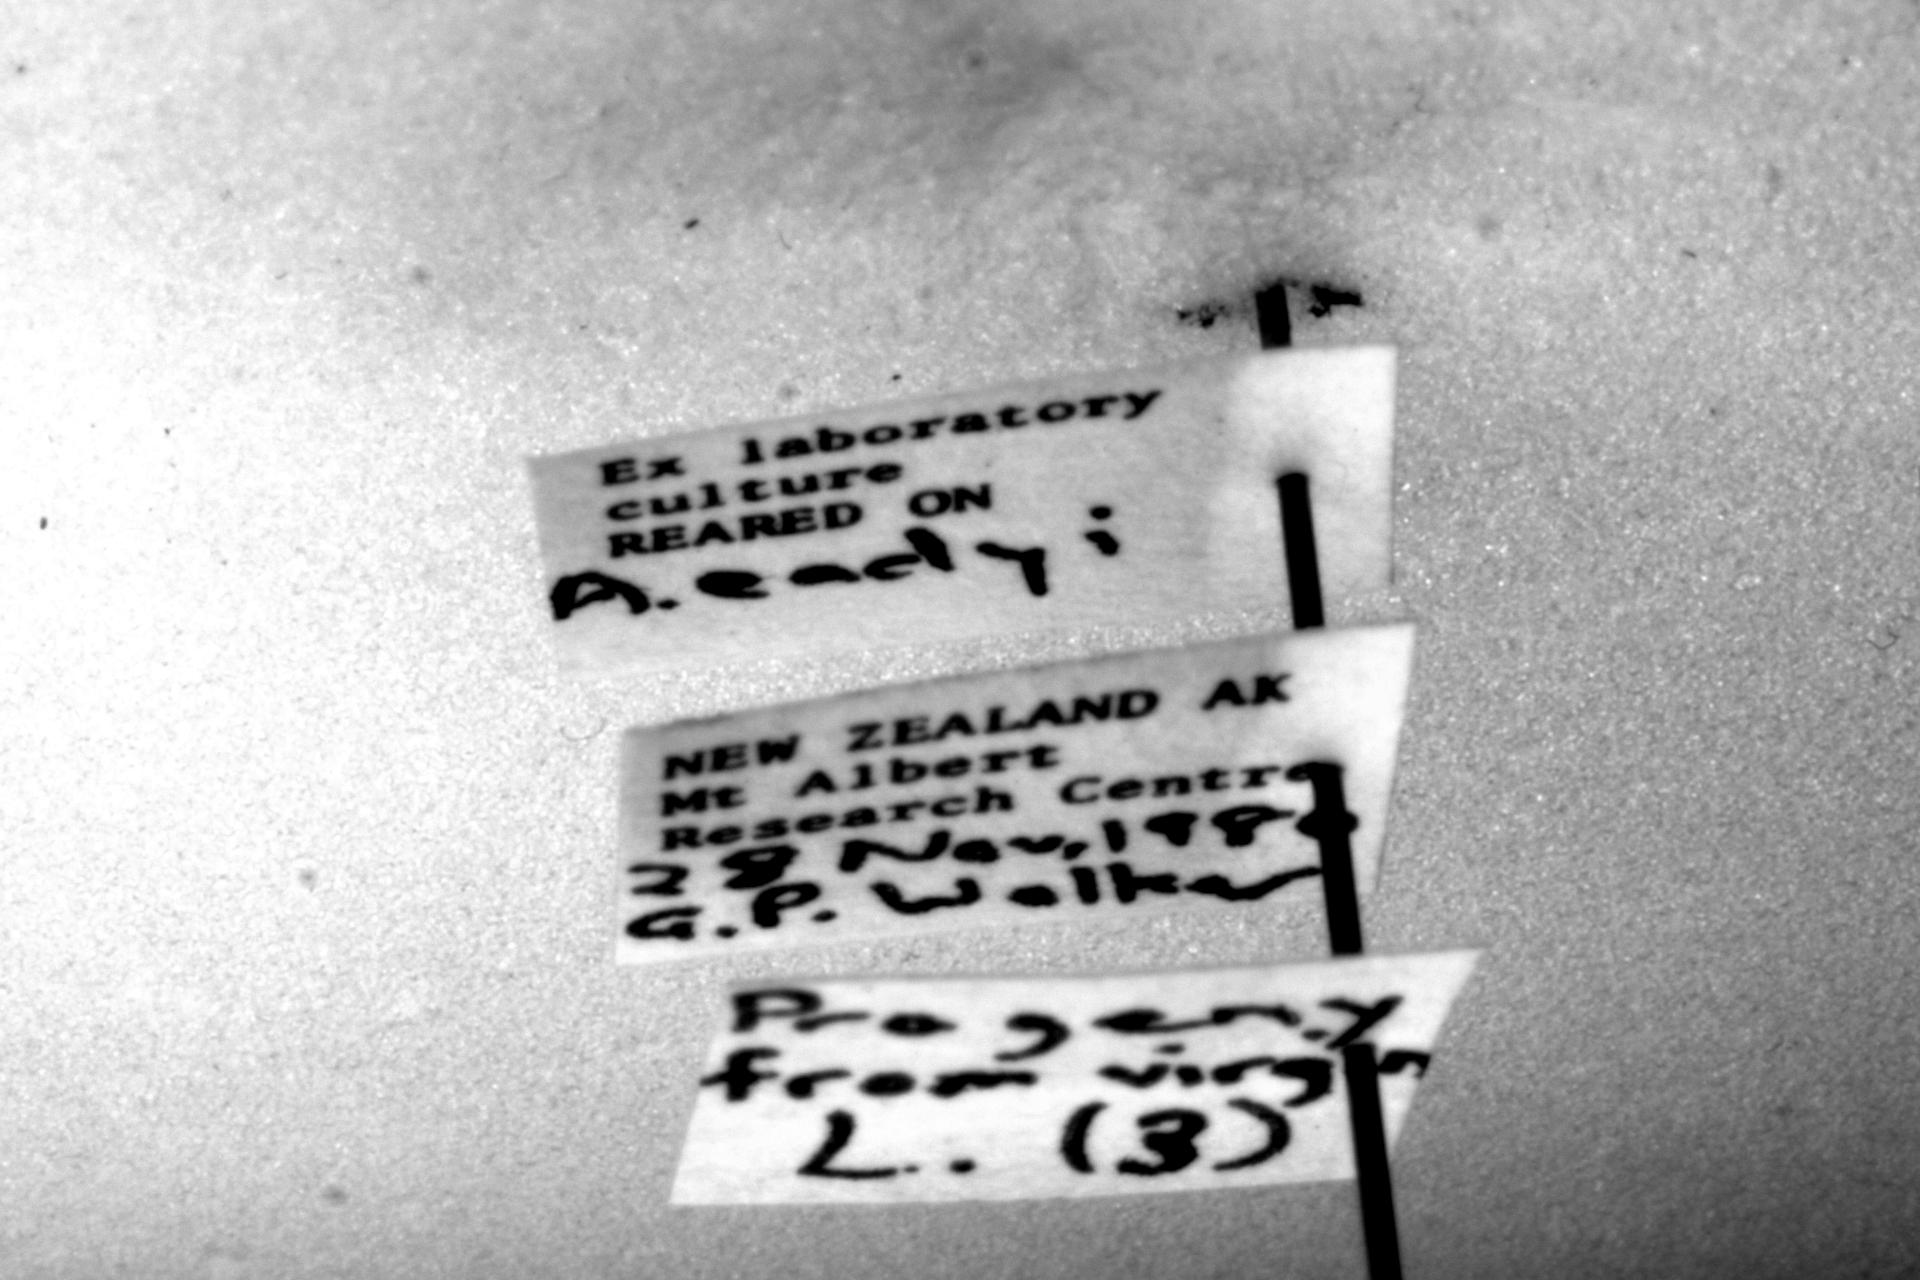 Ex laboratory
culture
REARED ON
A. eadyi
NEW ZEALAND AK
Mt Albert
Research Centre
28 Nov. 1980
G.P. Walker
Progeny
from virgin
L.. (3)